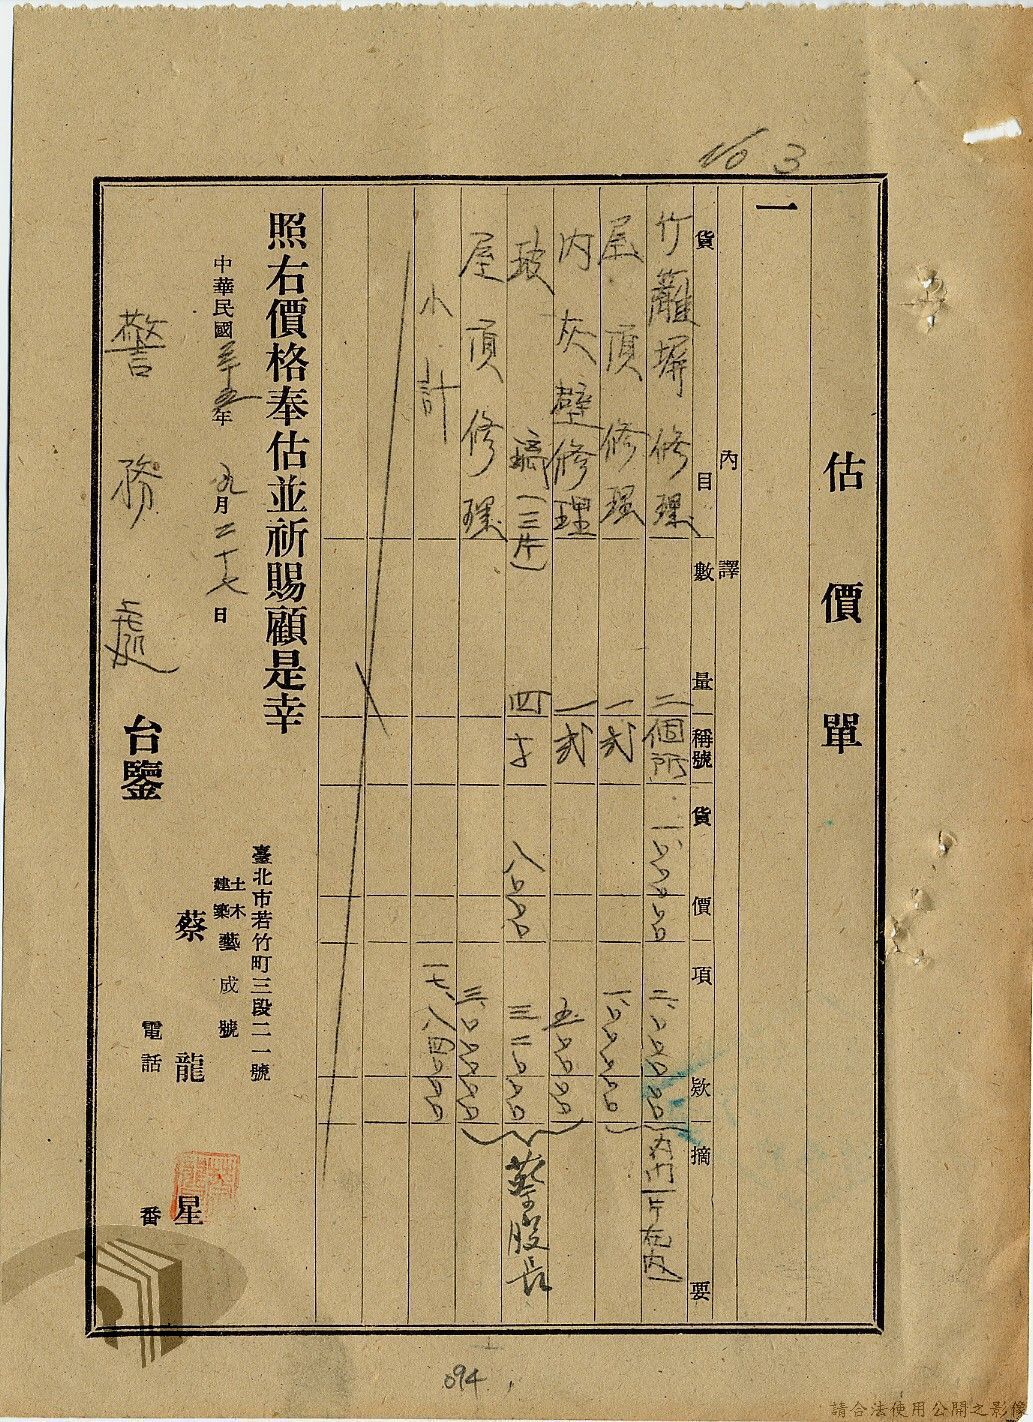 No 3
估價單
一
內譯
貨目 數量 稱號 貨價 項款 摘要
竹籬塀修理 二個所 一、〇〇〇〇〇 二、〇〇〇〇〇 內門一片在內
屋頂修理 一式 一、〇〇〇〇〇
內灰壁修理 一式 五〇〇〇〇
玻璃(三片) 四才 八〇〇〇 三二〇〇〇
屋頂修理 三、〇〇〇〇〇
蔡股長
小計 一七、八四〇〇〇
照右價格奉估並祈賜顧是幸
中華民國三十五年 九月二十七日
警務處 台鑒
臺北市若竹町三段二一號
土木建築 藝成號
蔡龍星
電話 番
094
請合法使用公開之影像